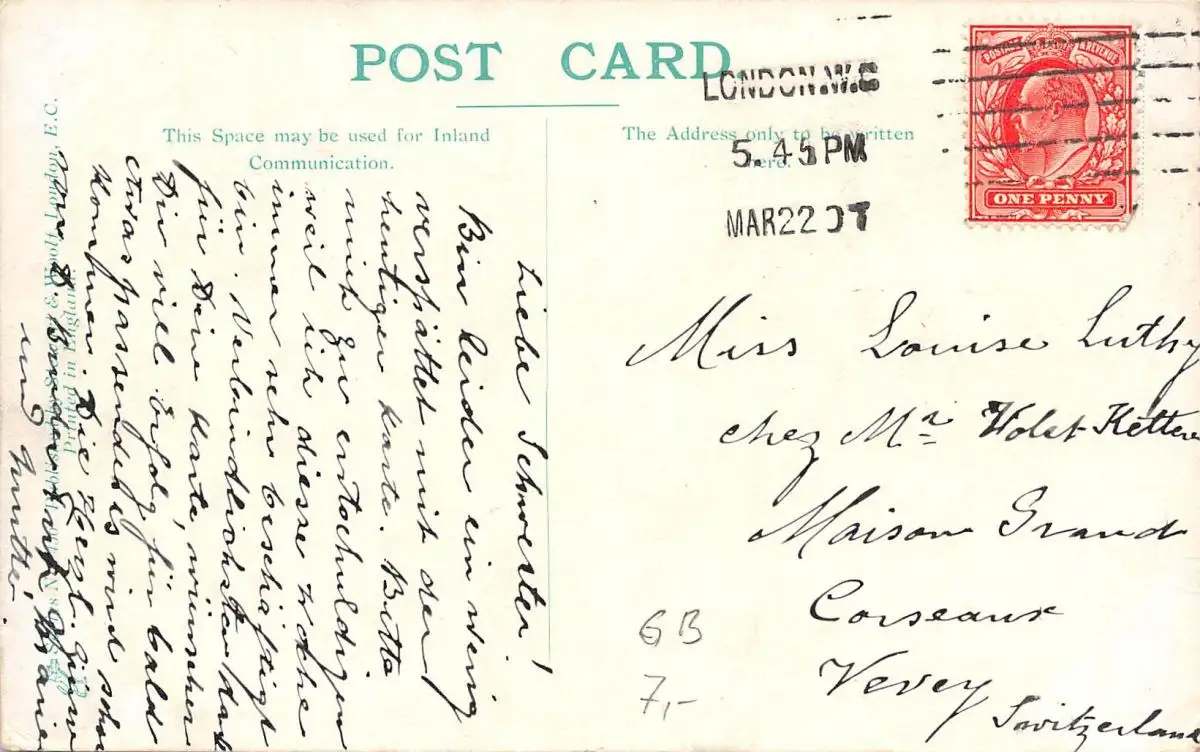 POST CARD
This Space may be used for Inland
Communication.
The Address only to be written
here.
LONDON.W.C
5.45PM
MAR22 07
POSTAGE & REVENUE
ONE PENNY
Liebe Schwester!
Bin leider ein wenig
verspätet mit der
heutiger Karte. Bitte
mich zu entschuldigen
weil ich diese Woche
immer sehr beschäftigt
bin. Verbindlichsten dank
für Deine Karte, wünschen
Dir viel Erfolg, für bald
etwas passendes wird schon
kommen. Die Herzl. Grüsse
von D. Bruder
und
Miss Louise Luthy
chez Mr Holst-Ketterer
Maison Grand
Corseaux
Vevey
Switzerland
GB
7,-
Woolf, London, E.C.
Printed in England.